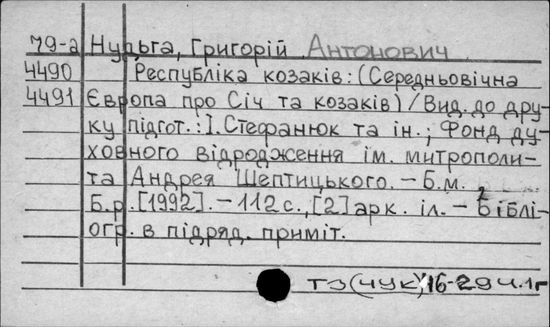 79-а Нудьга, Григорій Антонович
4490 Республіка козаків: (Середньовічна
4491 Європа про Січ та козаків) / Вид. до дру-
ку підгот.: І. Стефанюк та ін.; Фонд ду-
ховного відродження ім. митрополи-
та Андрея Шептицького. - Б.м.,
Б.р. [1992]. - 112 с., [2] арк. іл. - Бiблі-
огр. в підряд. приміт.
ТЗ(4УК)16-29 Ч.1г